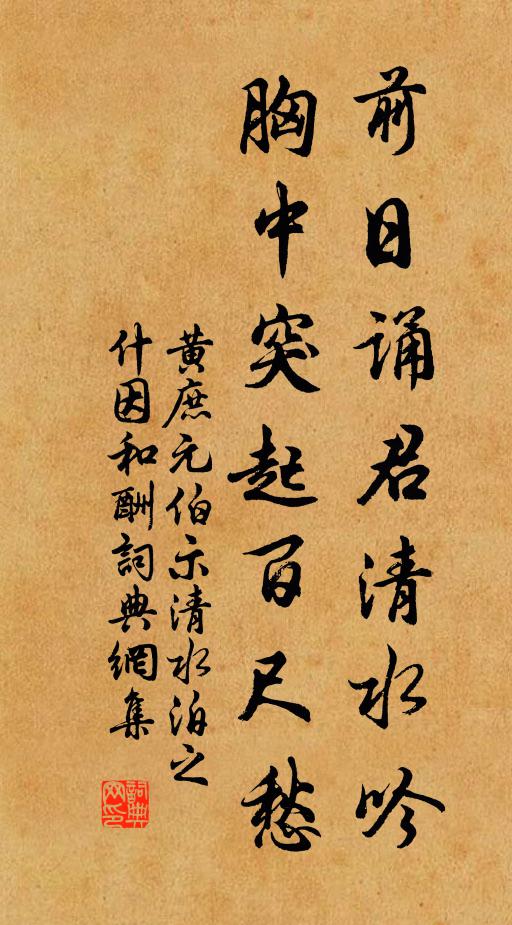 前日誦君清水吟
胸中突起百尺愁
黄庶元伯示清水泊之
什因和酬詞典網集
詞典網印